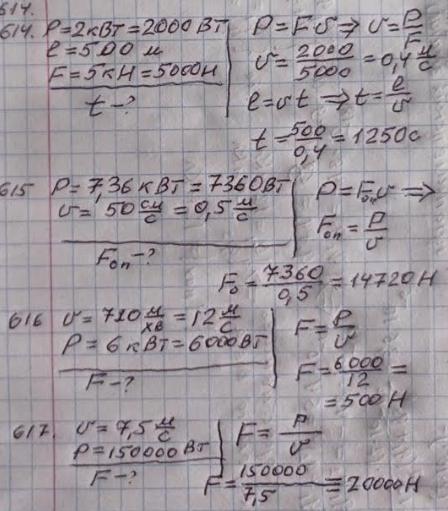 614.
614. P=2кВт=2000Вт
l=500 м
F=5кН=5000Н
t-?
P=Fυ⇒υ=P/F
υ=2000/5000=0,4 м/с
l=υt⇒t=l/υ
t=500/0,4=1250с
615 P=7,36 кВт=7360Вт
υ=50 см/с=0,5 м/с
Fоп-?
P=Fопυ⇒
Fоп=P/υ
F0=7360/0,5=14720Н
616 υ=720 м/хв=12 м/с
P=6кВт=6000Вт
F-?
F=P/υ
F=6000/12=
=500Н
617. υ=7,5 м/с
P=150000Вт
F-?
F=P/υ
F=150000/7,5=20000Н